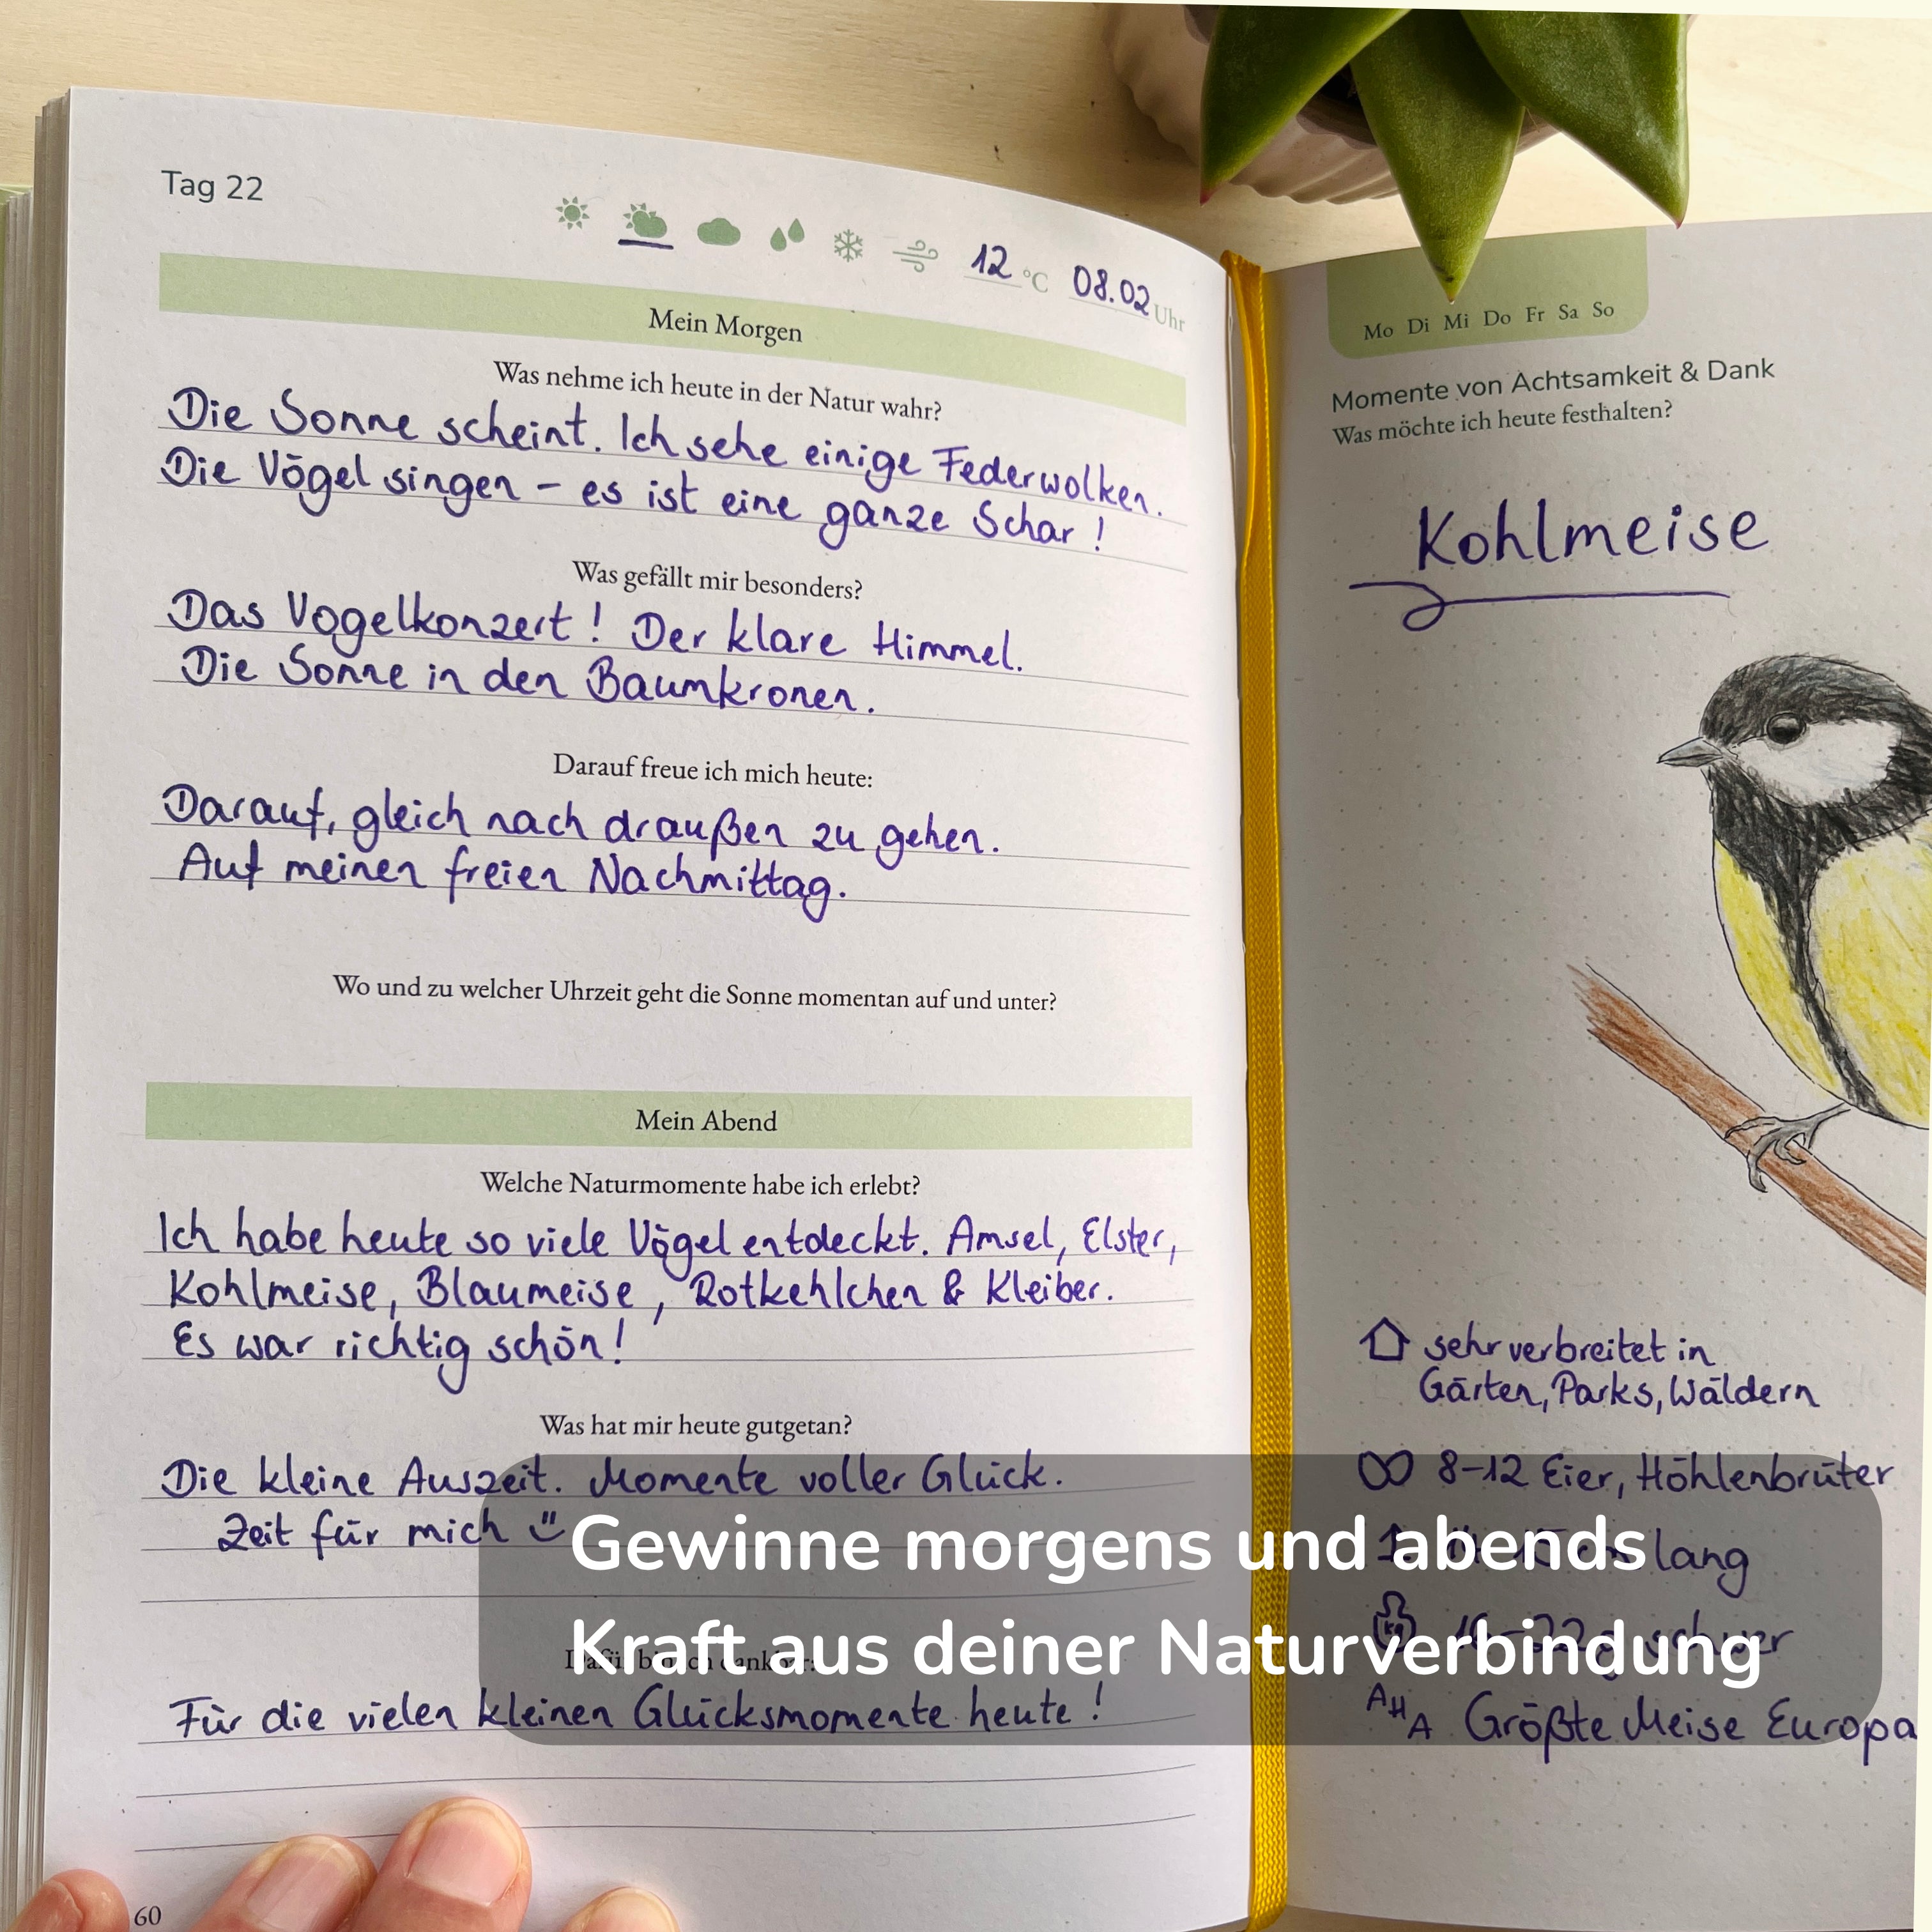 Tag 22
12 °C 08.02 Uhr
Mein Morgen
Was nehme ich heute in der Natur wahr?
Die Sonne scheint. Ich sehe einige Federwolken.
Die Vögel singen – es ist eine ganze Schar!
Was gefällt mir besonders?
Das Vogelkonzert! Der klare Himmel.
Die Sonne in den Baumkronen.
Darauf freue ich mich heute:
Darauf, gleich nach draußen zu gehen.
Auf meinen freien Nachmittag.
Wo und zu welcher Uhrzeit geht die Sonne momentan auf und unter?
Mein Abend
Welche Naturmomente habe ich erlebt?
Ich habe heute so viele Vögel entdeckt. Amsel, Elster,
Kohlmeise, Blaumeise, Rotkehlchen & Kleiber.
Es war richtig schön!
Was hat mir heute gutgetan?
Die kleine Auszeit. Momente voller Glück.
Zeit für mich
Dafür bin ich dankbar:
Für die vielen kleinen Glücksmomente heute!
60
Mo Di Mi Do Fr Sa So
Momente von Achtsamkeit & Dank
Was möchte ich heute festhalten?
Kohlmeise
sehr verbreitet in
Gärten, Parks, Wäldern
8-12 Eier, Höhlenbrüter
lang
schwer
AHA Größte Meise Europa
Gewinne morgens und abends
Kraft aus deiner Naturverbindung